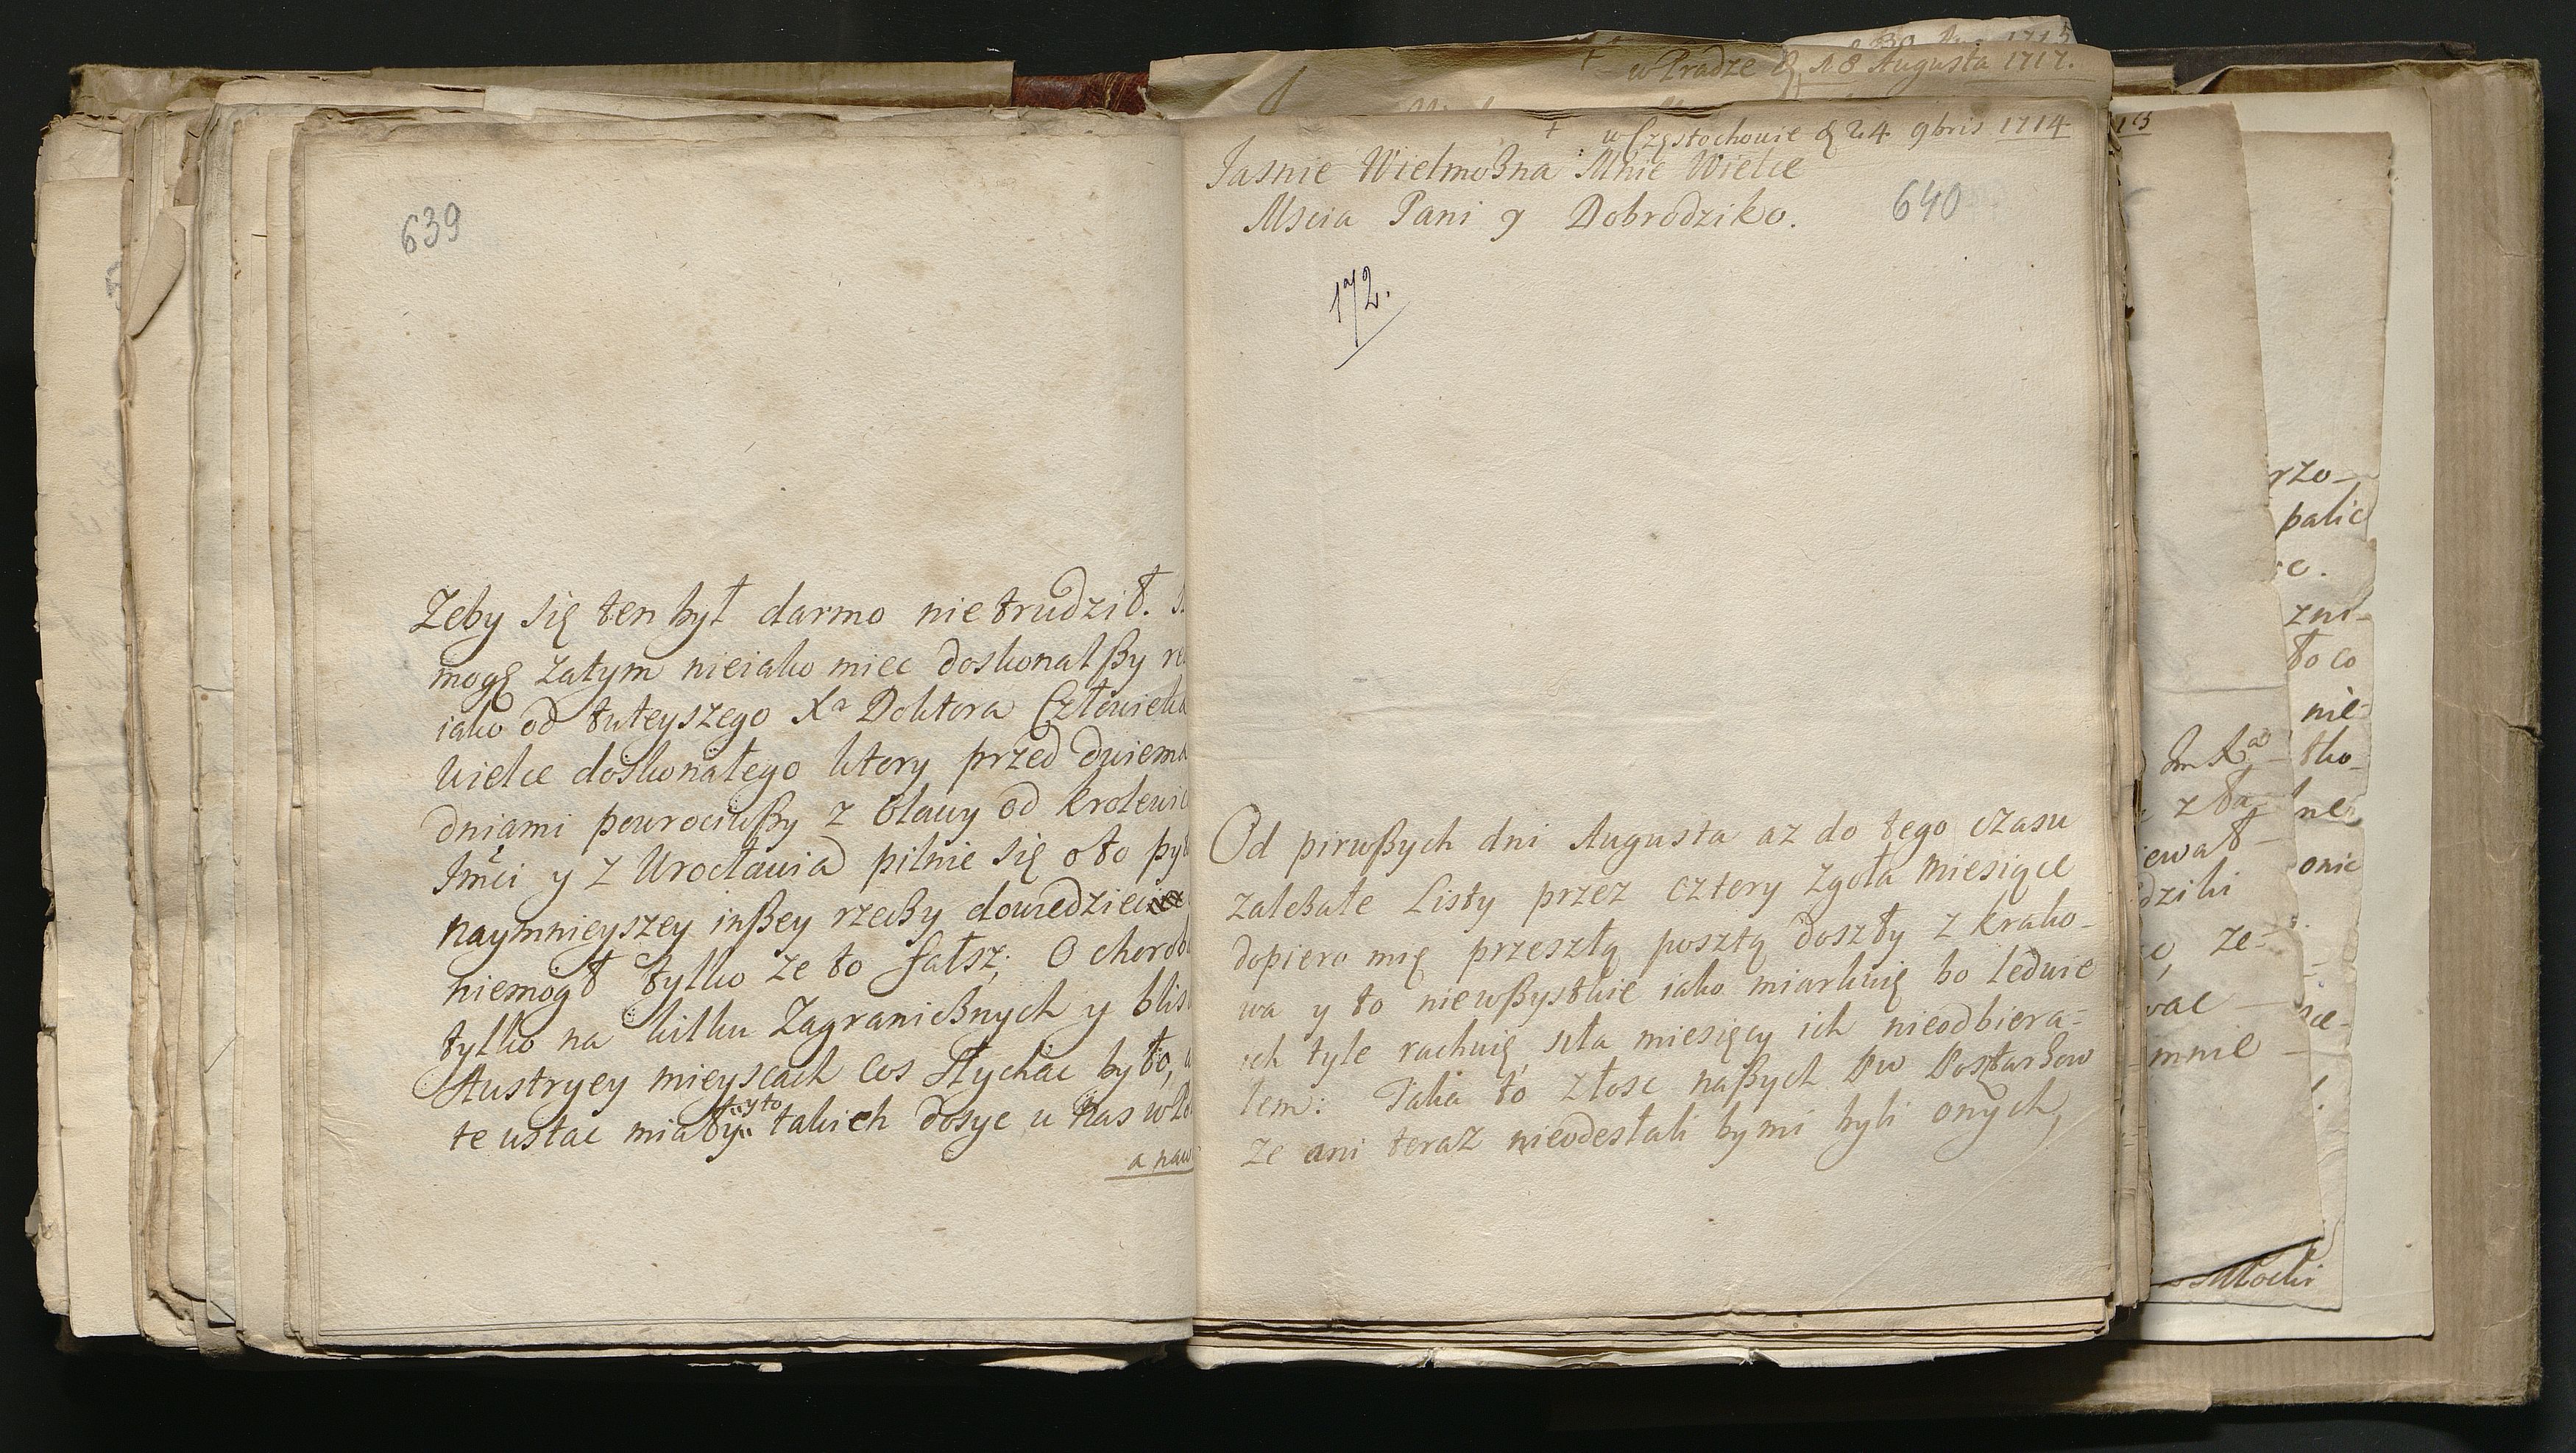 639
Zeby się ten był darmo nie trudził.
mogę zatym nieiako miec doskonalßy
iako od tuteyszego Xa Doktora Człowieka
wielce doskonałego ktory przed dwiema
dniami powrociwßy z Oławy od Krolewic
Jmci y z Wrocławia pilnie się o to pyt
naymnieyszey inßey rzeczy dowiedziec
niemogł tylko ze to fałsz; O chorob
tylko na kilku Zagranicznych y blis
Austryey mieyscach cos słychac było,
te ustac miały y to takich dosyc u nas w
a naw
w Pradze d 18 Augusta 1717.
+ w Częstochowie d 24 9bris 1714
Jasnie Wielmozna Mnie Wielce
Mscia Pani y Dobrodziko.
640
172.
Od pirwßych dni Augusta az do tego czasu
zalezałe Listy przez cztery zgoła miesiące
dopiero mię przeszłą posztą doszły z Krako-
wa y to niewßystkie iako miarkuię bo ledwie
ich tyle rachuię, siła miesięcy ich nieodbiera=
łem: Taka to złosc naßych Pw Posztarzow
ze ani teraz nieodesłali by mi byli onych,
rzo-
palic
zni-
to co
nie-
tko-
ne
onic
Jm Xa
z ta-
iewał
dzili
ze-
wac
mnie